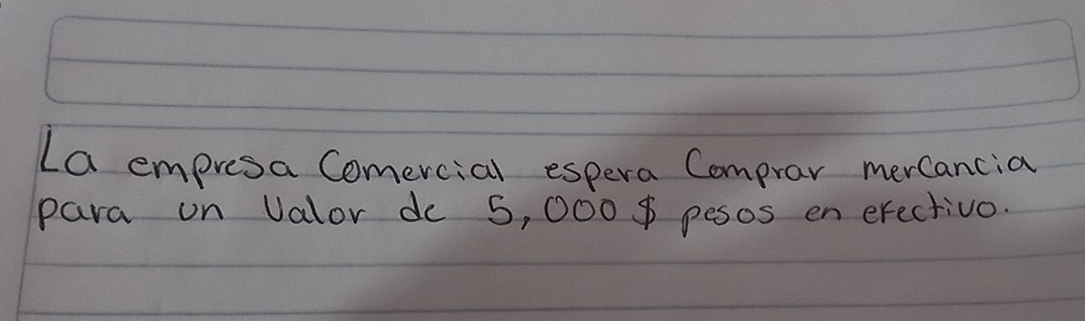 La empresa Comercial espera Comprar mercancia
para un Valor de 5,000 $ pesos en efectivo.